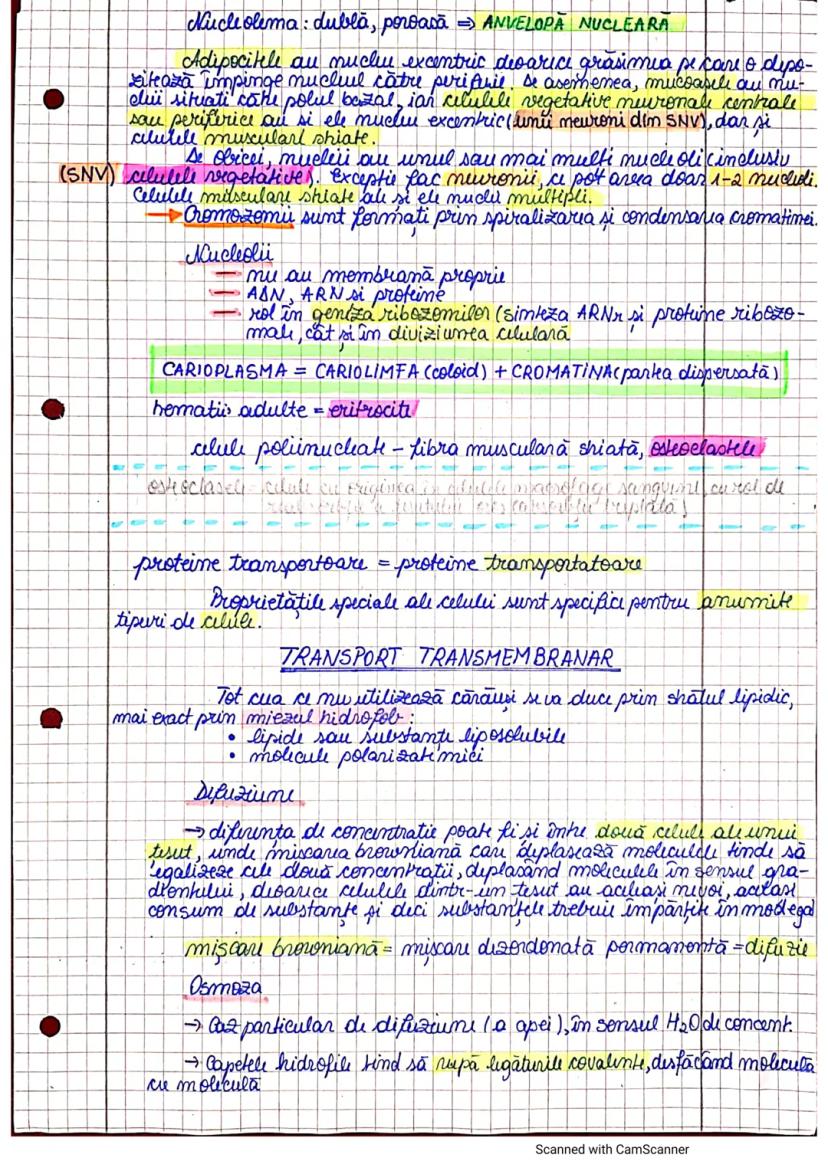 Nucleolema : dublă, poroasă ⇒ ANVELOPĂ NUCLEARĂ
Adipocitele au nucleu excentric deoarece grăsimea pe care o depo-
zitează împinge nucleul către periferie. De asemenea, mucoasele au nu-
clei situati către polul bazal, iar celulele vegetative neuronale centrale
sau periferice au si ele nucleu excentric (unii neuroni din SNV), dar și
celulele musculare striate.
De obicei, nucleii au unul sau mai multi nucleoli (inclusiv
(SNV) celulele vegetative). Excepție fac neuronii, ce pot avea doar 1-2 nucleoli.
Celulele musculare striate au si ele nuclei multipli.
→ Cromozomii sunt formați prin spiralizarea și condensarea cromatinei.
Nucleolii
— nu au membrană proprie
— ADN, ARN si proteine
— rol în geneza ribozomilor (sinteza ARNr și proteine ribozo-
male, cât și în diviziunea celulară
CARIOPLASMA = CARIOLIMFA (coloid) + CROMATINA (partea dispersată)
hematii adulte = eritrocite
celule polinucleate - fibra musculară striată, osteoclastele
osteoclasele - celule cu originea în celulele macrofage sanguine, cu rol de
proteine transportoare = proteine transportatoare
Proprietățile speciale ale celulei sunt specifice pentru anumite
tipuri de celule.
TRANSPORT TRANSMEMBRANAR
Tot ceea ce nu utilizează cărăuși se va duce prin stratul lipidic,
mai exact prin miezul hidrofob :
• lipide sau substanțe liposolubile
• molecule polarizate mici
Difuziune
→ diferența de concentratie poate fi si între două celule ale unui
țesut, unde miscarea browniană care deplasează moleculele tinde să
egalizeze cele două concentrații, deplasând moleculele în sensul gra-
dientului, deoarece celulele dintr-un țesut au aceleasi nevoi, acelasi
consum de substanțe și deci substanțele trebuie împărțite în mod egal
mișcare browniană = mișcare dezordonată permanentă = difuzie
Osmoza
→ Caz particular de difuziune (a apei), în sensul H₂O de concent.
→ Capetele hidrofile tind să rupă legăturile covalente, desfăcând moleculă
cu moleculă
Scanned with CamScanner